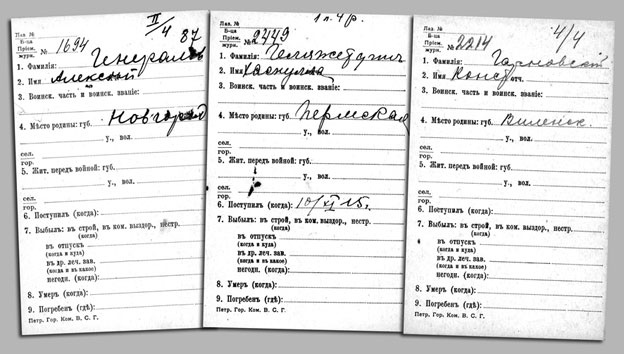 Лаз. №
Б-ца
Пріем.
журн.
№ 1694
II/4
87
1. Фамилія:
2. Имя Алексей
3. Воинск. часть и воинск. званіе:
4. Мѣсто родины: губ. Новгород
у., вол.
сел.
гор.
5. Жит. передъ войной: губ.
у., вол.
сел.
гор.
6. Поступилъ (когда):
7. Выбылъ: въ строй, въ ком. выздор., нестр.
(когда)
въ отпускъ
(когда и куда)
въ др. леч. зав.
(когда и въ какое)
негодн. (когда):
8. Умеръ (когда):
9. Погребенъ (гдѣ):
Петр. Гор. Ком. В. С. Г.
Лаз. №
Б-ца
Пріем.
журн.
№ 2449
1. Фамилія:
2. Имя
3. Воинск. часть и воинск. званіе:
4. Мѣсто родины: губ. Пермская
у., вол.
сел.
гор.
5. Жит. передъ войной: губ.
у., вол.
сел.
гор.
6. Поступилъ (когда): 10/XI 15.
7. Выбылъ: въ строй, въ ком. выздор., нестр.
(когда)
въ отпускъ
(когда и куда)
въ др. леч. зав.
(когда и въ какое)
негодн. (когда):
8. Умеръ (когда):
9. Погребенъ (гдѣ):
Петр. Гор. Ком. В. С. Г.
Лаз. №
Б-ца
Пріем.
журн.
№ 2214
4/4
1. Фамилія:
2. Имя Конст отч.
3. Воинск. часть и воинск. званіе:
4. Мѣсто родины: губ. Виленск.
у., вол.
сел.
гор.
5. Жит. передъ войной: губ.
у., вол.
сел.
гор.
6. Поступилъ (когда):
7. Выбылъ: въ строй, въ ком. выздор., нестр.
(когда)
въ отпускъ
(когда и куда)
въ др. леч. зав.
(когда и въ какое)
негодн. (когда):
8. Умеръ (когда):
9. Погребенъ (гдѣ):
Петр. Гор. Ком. В. С. Г.